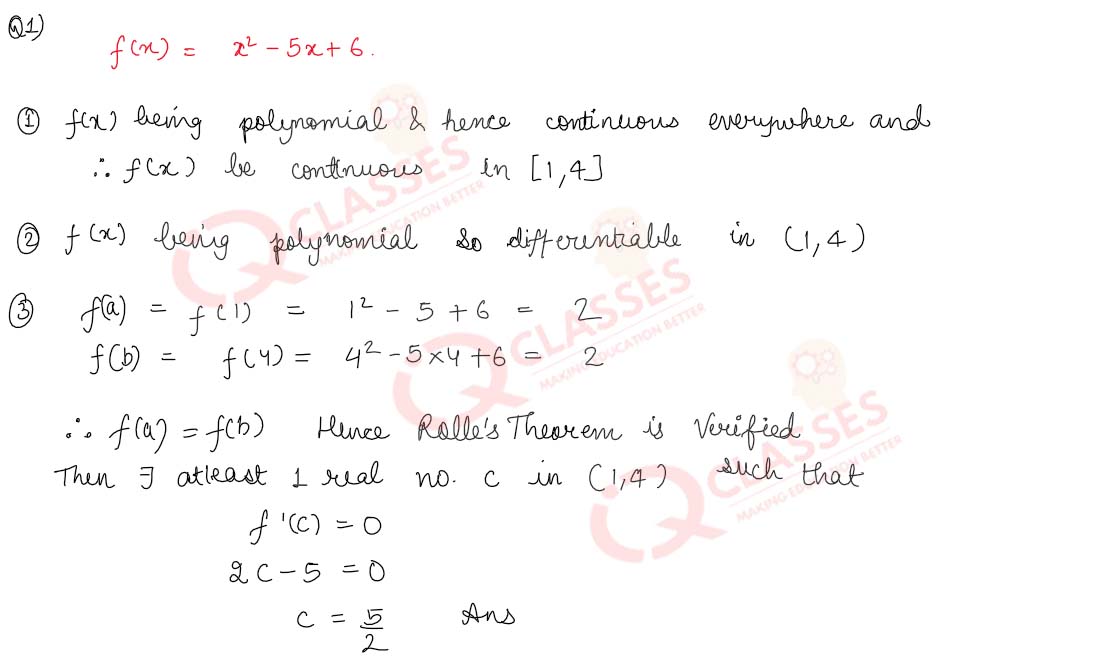 Q1)
f(x) = x² - 5x + 6.
① f(x) being polynomial & hence continuous everywhere and
∴ f(x) be continuous in [1,4]
② f(x) being polynomial so differentiable in (1,4)
③ f(a) = f(1) = 1² - 5 + 6 = 2
f(b) = f(4) = 4² - 5×4 + 6 = 2
∴ f(a) = f(b) Hence Rolle's Theorem is Verified
Then ∃ atleast 1 real no. c in (1,4) such that
f'(c) = 0
2c - 5 = 0
c = 5/2 Ans
CLASSES
MAKING EDUCATION BETTER
CLASSES
MAKING EDUCATION BETTER
CLASSES
MAKING EDUCATION BETTER